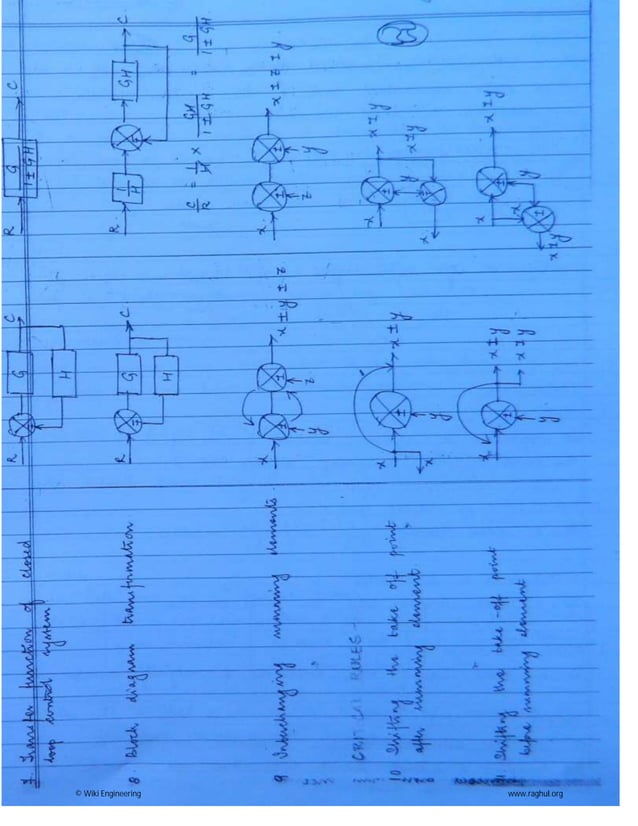 7. Transfer function of closed
loop control system
R
G
H
C
R
G
1 ± GH
C
8. Block diagram transformation
R
G
H
C
R
1
H
GH
C
C/R = 1/H × GH/1 ± GH = G/1 ± GH
9. Interchanging summing elements
x
y
z
x ± y ± z
x
z
y
x ± z ± y
CRITICAL RULES -
10. Shifting the take off point
after summing element
x
x
y
x ± y
x
y
x ± y
x ± y
x
11. Shifting the take-off point
before summing element
x
y
x ± y
x ± y
x
x
y
x ± y
x ± y
© Wiki Engineering
www.raghul.org